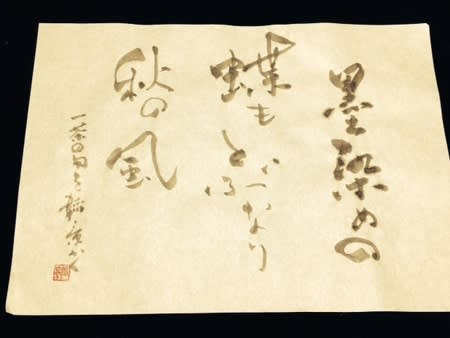 墨染めの
蝶もとぶなり
秋の風
一茶の句を